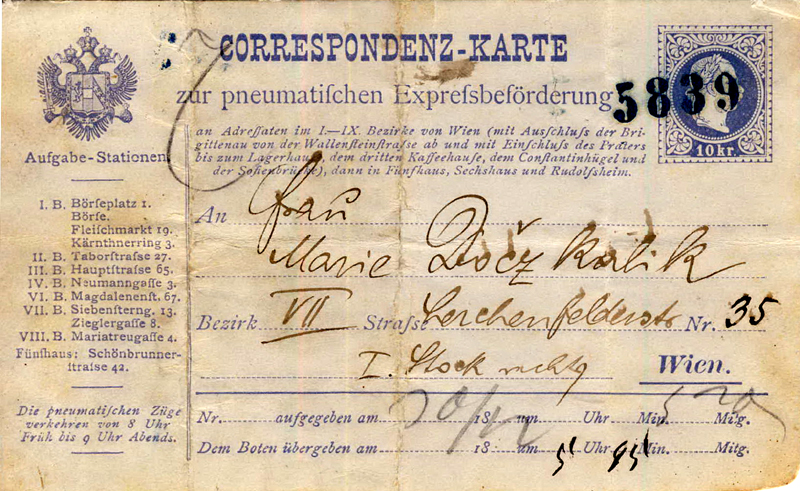 CORRESPONDENZ-KARTE
zur pneumatiſchen Expreſsbeförderung
5839
10 kr.
an Adreſſaten im I.—IX. Bezirke von Wien (mit Ausſchluſs der Bri-
gittenau von der Wallenſteinſtraſse ab und mit Einſchluſs des Praters
bis zum Lagerhauſe, dem dritten Kaffeehauſe, dem Conſtantinhügel und
der Sofienbrücke), dann in Fünfhaus, Sechshaus und Rudolfsheim.
Aufgabe-Stationen.
I. B. Börſeplatz 1.
Börſe.
Fleiſchmarkt 19.
Kärnthnerring 3.
II. B. Taborſtraſse 27.
III. B. Hauptſtraſse 65.
IV. B. Neumanngaſſe 3.
VI. B. Magdalenenſt. 67.
VII. B. Siebenſterng. 13.
Zieglergaſſe 8.
VIII. B. Mariatreugaſſe 4.
Fünfhaus: Schönbrunner-
ſtraſse 42.
Die pneumatiſchen Züge
verkehren von 8 Uhr
Früh bis 9 Uhr Abends.
An Frau
Marie Dočzkalik
Bezirk VII Straſse Lerchenfelderstr Nr. 35
I. Stock rechts Wien.
Nr. aufgegeben am 20/12 18 um Uhr Min. 5 20 Mitg.
Dem Boten übergeben am 18 um 5 Uhr 45 Min. Mitg.